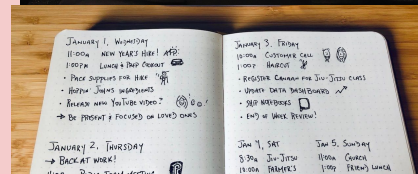 JANUARY 1, WEDNESDAY
11:00A NEW YEAR'S HIKE!
1:00P LUNCH & PREP COOKOUT
• PACK SUPPLIES FOR HIKE
• HOPPIN' JOHNS INGREDIENTS
• RELEASE NEW YOUTUBE VIDEO?
→ BE PRESENT & FOCUSED ON LOVED ONES
JANUARY 2, THURSDAY
→ BACK AT WORK!
JANUARY 3, FRIDAY
10:00A CUSTOMER CALL
1:00P HAIRCUT
• REGISTER CANAAN FOR JIU-JITZU CLASS
• UPDATE DATA DASHBOARD
• SHIP NOTEBOOKS
• END OF WEEK REVIEW!
JAN 4, SAT
8:30A JIU-JITSU
10:00A FARMER'S
JAN 5, SUNDAY
11:00A CHURCH
1:00P FRIEND LUNCH